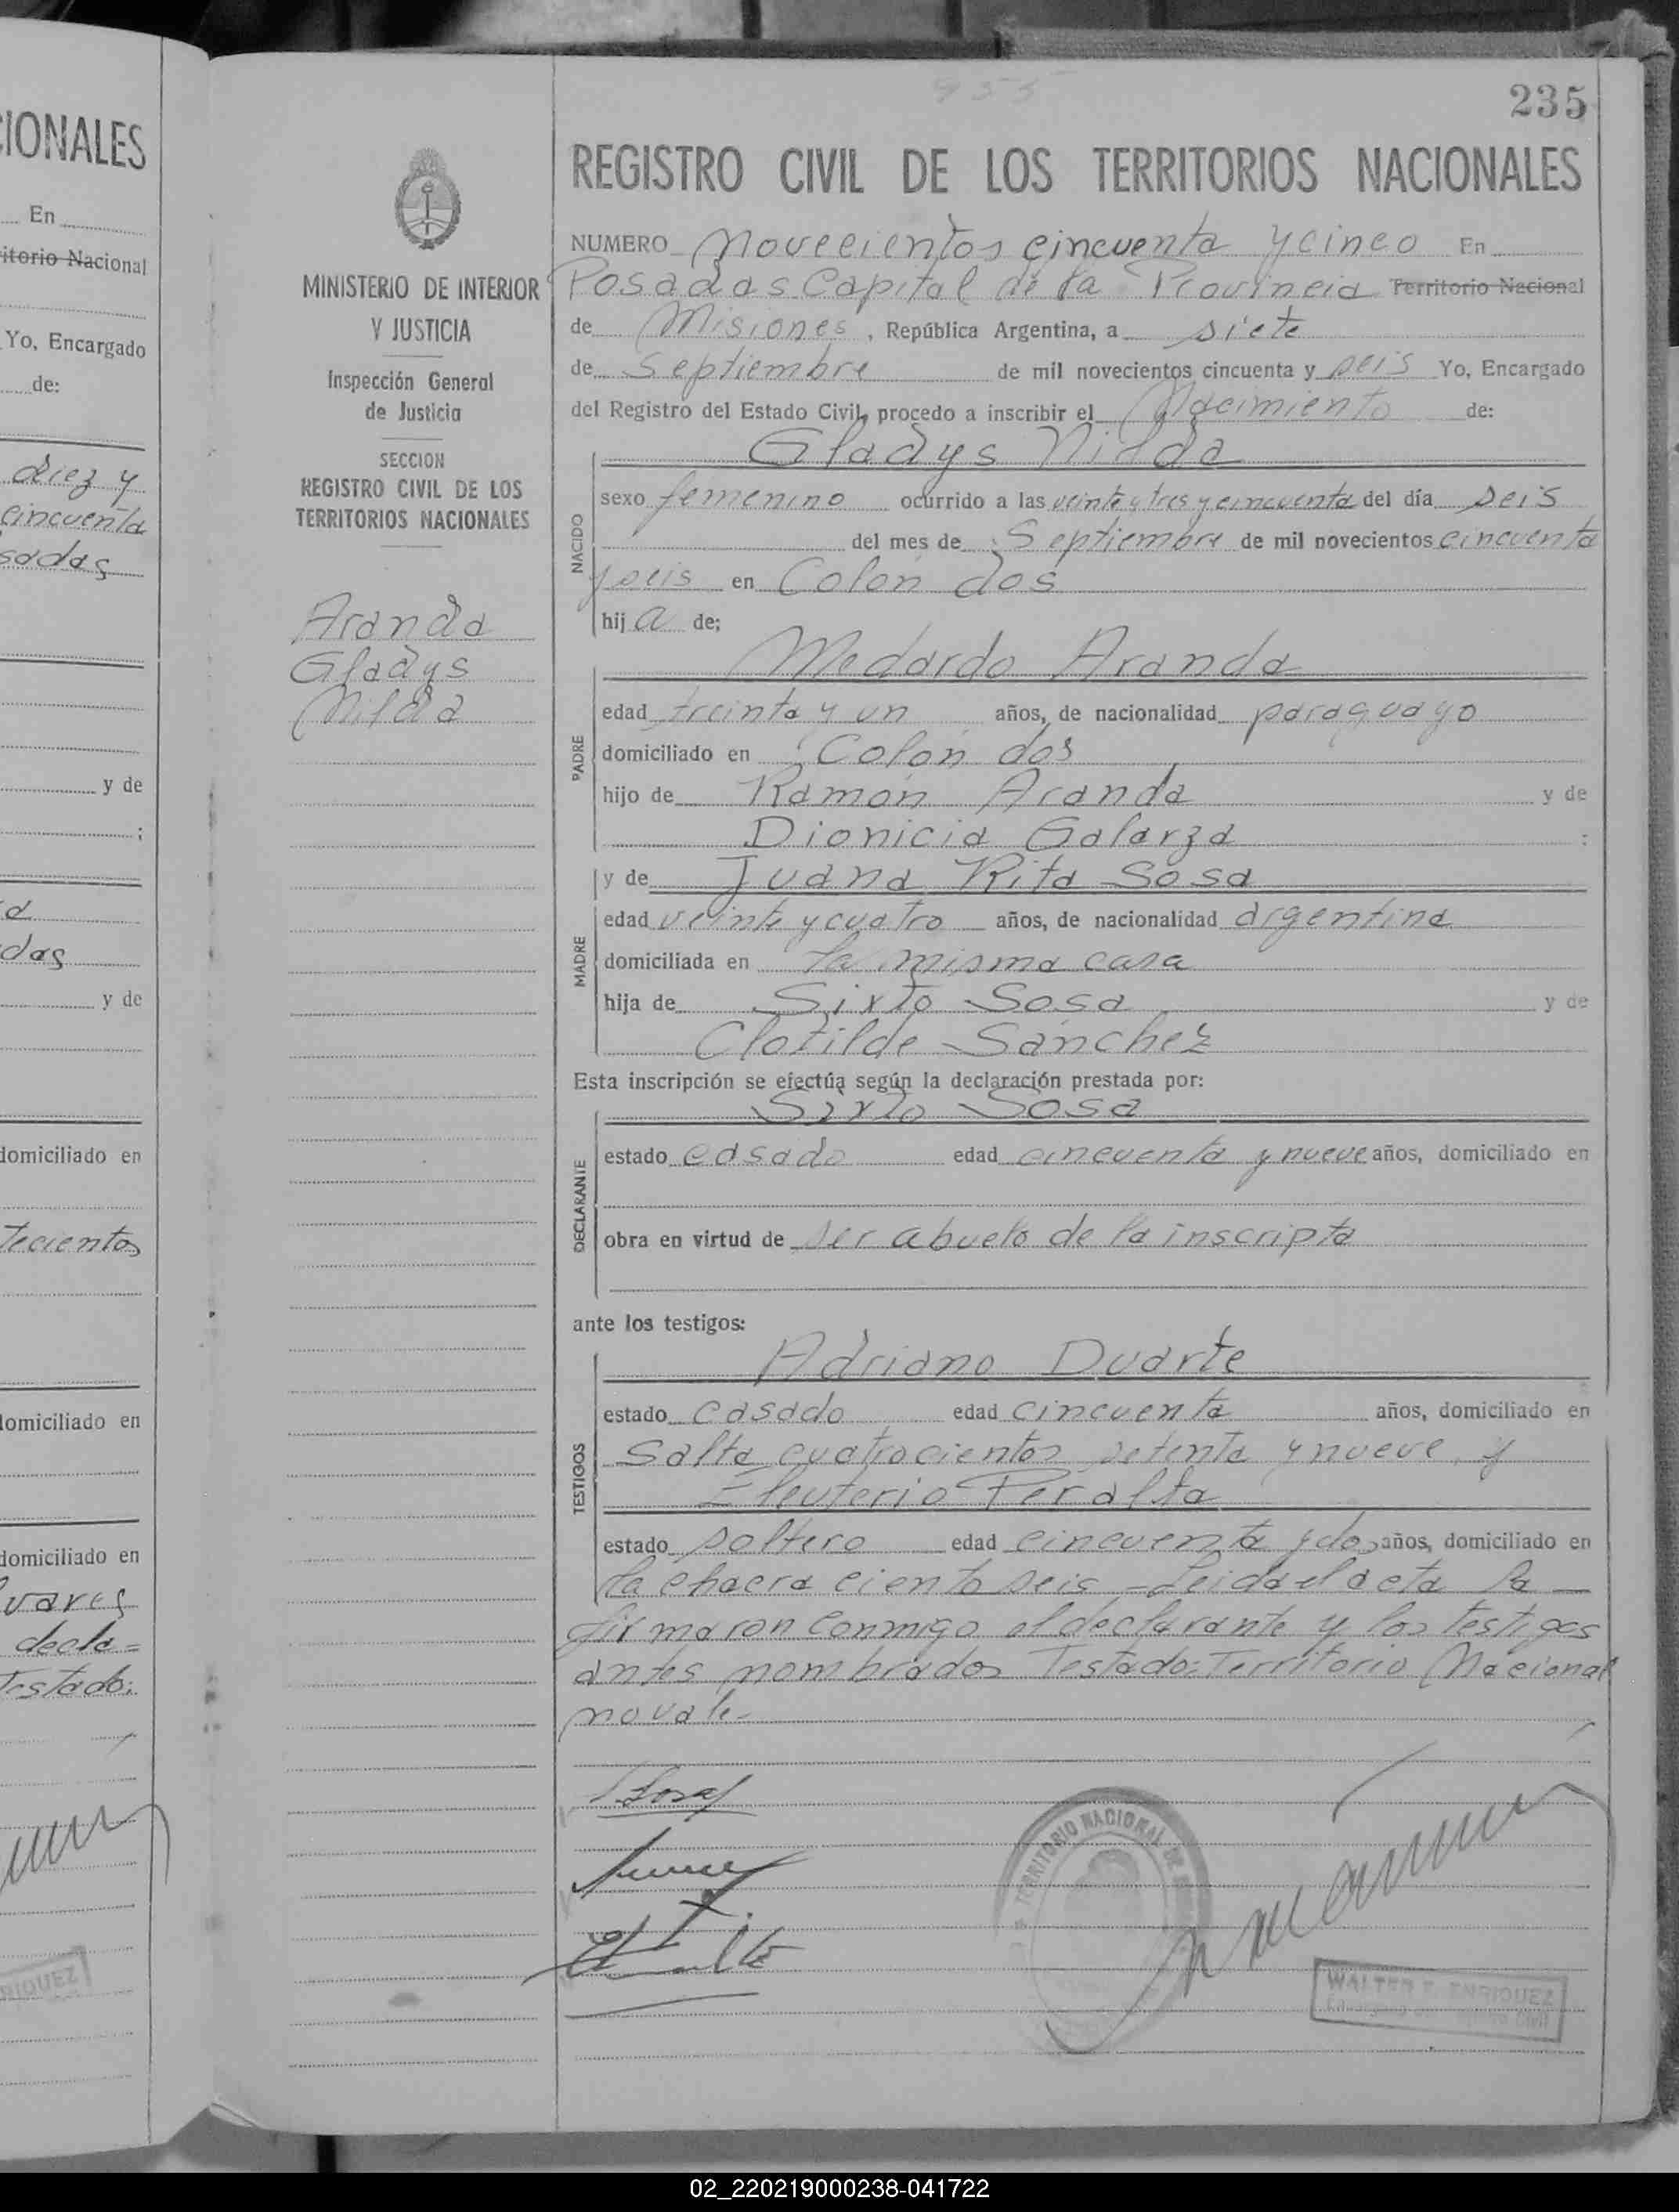 CIONALES
En
itorio Nacional
Yo, Encargado
de:
diez y
cincuenta
sadas
y de
;
a
das
y de
domiciliado en
tecientos
domiciliado en
domiciliado en
vares
decla=
Testado:
RIQUEZ
MINISTERIO DE INTERIOR
Y JUSTICIA
Inspección General
de Justicia
SECCION
REGISTRO CIVIL DE LOS
TERRITORIOS NACIONALES
Aranda
Gladys
Nilda
955
235
REGISTRO CIVIL DE LOS TERRITORIOS NACIONALES
NUMERO Novecientos cincuenta y cinco En
Posadas Capital de la Provincia Territorio Nacional
de Misiones, República Argentina, a siete
de Septiembre de mil novecientos cincuenta y seis Yo, Encargado
del Registro del Estado Civil, procedo a inscribir el Nacimiento de:
Gladys Nilda
NACIDO
sexo femenino ocurrido a las veinte y tres y cincuenta del día seis
del mes de Septiembre de mil novecientos cincuenta
y seis en Colón dos
hij a de;
Medardo Aranda
PADRE
edad treinta y un años, de nacionalidad paraguayo
domiciliado en Colón dos
hijo de Ramón Aranda y de
Dionicia Galarza :
y de Juana Rita Sosa
MADRE
edad veinte y cuatro años, de nacionalidad argentina
domiciliada en la misma casa
hija de Sixto Sosa y de
Clotilde Sánchez
Esta inscripción se efectúa según la declaración prestada por:
Sixto Sosa
DECLARANTE
estado casado edad cincuenta y nueve años, domiciliado en
obra en virtud de ser abuelo de la inscripta
ante los testigos:
Adriano Duarte
TESTIGOS
estado casado edad cincuenta años, domiciliado en
Salta cuatrocientos setenta y nueve y
Eleuterio Peralta
estado soltero edad cincuenta y dos años, domiciliado en
la chacra ciento seis - Leida el acta la
firmaron conmigo el declarante y los testigos
antes nombrados Testado: Territorio Nacional
no vale-
S Sosa
TERRITORIO NACIONAL DE
WALTER F. ENRIQUEZ
Encargado del Registro Civil
02_220219000238-041722